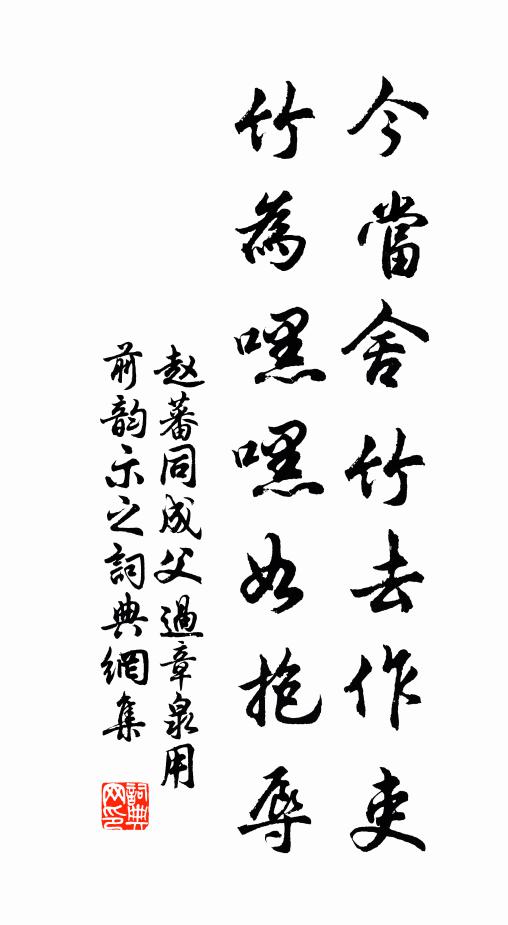 今當舍竹去作吏
竹為嘿嘿如抱辱
赵蕃同成父過章泉用
前韵示之詞典網集
詞典网印